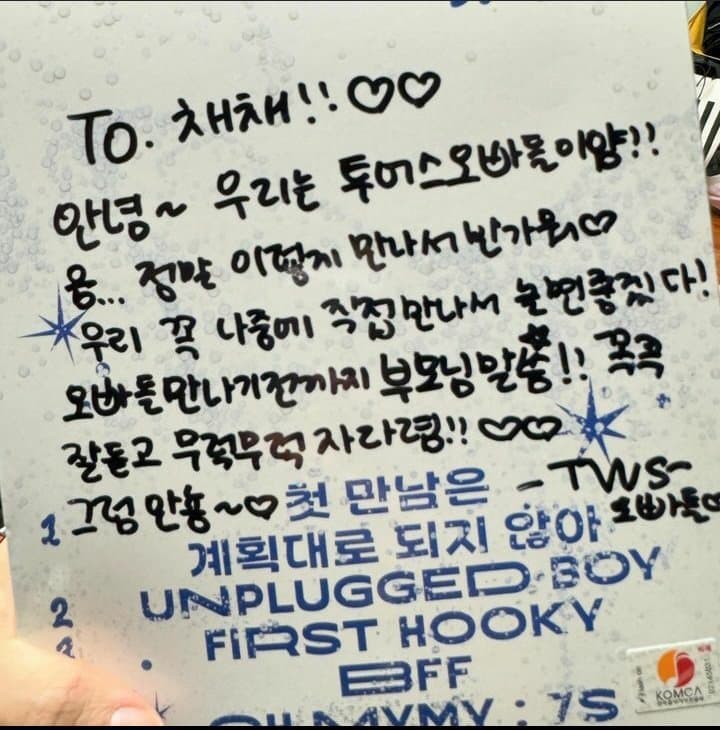 To. 채채!! ♡♡
안녕~ 우리는 투어스오빠들이얌!!
음... 정말 이렇게 만나서 반가워♡
우리 꼭 나중에 직접만나서 놀면좋겠다!
오빠들만나기전까지 부모님말씀!! 꼭꼭
잘듣고 무럭무럭 자라렴!! ♡♡
그럼 안뇽~♡
-TWS-
오빠들♡
1 첫 만남은
계획대로 되지 않아
2 UNPLUGGED BOY
3 FIRST HOOKY
BFF
OH MYMY : 7S
KOMCA